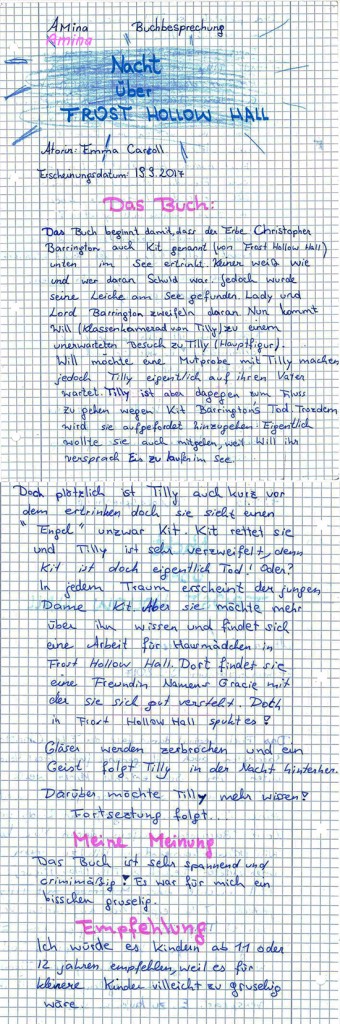 Amina Buchbesprechung
Amina
Nacht
über
FROST HOLLOW HALL
Atorin: Emma Carroll
Erscheinungsdatum: 19.9.2017
Das Buch:
Das Buch beginnt damit, dass der Erbe Christopher
Barrington auch Kit genannt (von Frost Hollow Hall)
unten im See ertrinkt. Keiner weiß wie
und wer daran Schuld war. Jedoch wurde
seine Leiche am See gefunden. Lady und
Lord Barrington zweifeln daran. Nun kommt
Will (Klassenkamerad von Tilly) zu einem
unerwarteten Besuch zu Tilly (Hauptfigur).
Will möchte eine Mutprobe mit Tilly machen
jedoch Tilly eigentlich auf ihren Vater
wartet. Tilly ist aber dagegen zum Fluss
zu gehen wegen Kit Barringtons Tod. Trozdem
wird sie aufgefordert hinzugehen. Eigentlich
wollte sie auch mitgehen, weil Will ihr
versprach Eis zu laufen im See.
Doch plötzlich ist Tilly auch kurz vor
dem ertrinken doch sie sieht einen
"Engel" unzwar Kit. Kit rettet sie
und Tilly ist sehr verzweifelt, denn
Kit ist doch eigentlich Tod! Oder?
In jedem Traum erscheint der jungen
Dame Kit. Aber sie möchte mehr
über ihn wissen und findet sich
eine Arbeit für Hausmädchen in
Frost Hollow Hall. Dort findet sie
eine Freundin Namens Gracie mit
der sie sich gut versteht. Doch
in Frost Hollow Hall spukt es?
Gläser werden zerbrochen und ein
Geist folgt Tilly in der Nacht hinterher.
Darüber möchte Tilly mehr wissen?
Fortseztung folgt...
Meine Meinung
Das Buch ist sehr spannend und
crimimäßig! Es war für mich ein
bisschen gruselig.
Empfehlung
Ich würde es kindern ab 11 oder
12 jahren empfehlen, weil es für
kleinere Kinder villeicht zu gruselig
wäre.